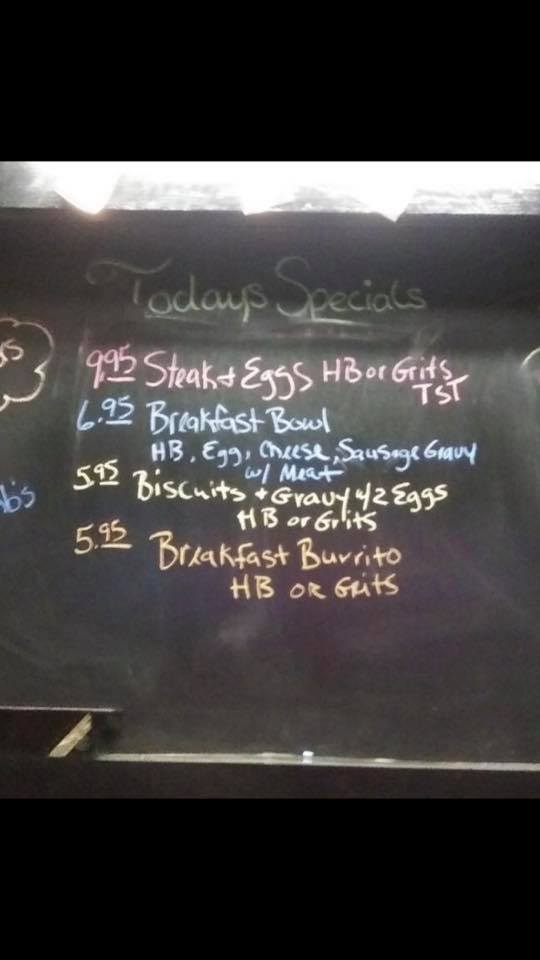 Todays Specials
9.95 Steak + Eggs HB or Grits
TST
6.95 Breakfast Bowl
HB, Egg, Cheese, Sausage Gravy
w/ Meat
5.95 Biscuits + Gravy w/2 Eggs
HB or Grits
5.95 Breakfast Burrito
HB OR Grits